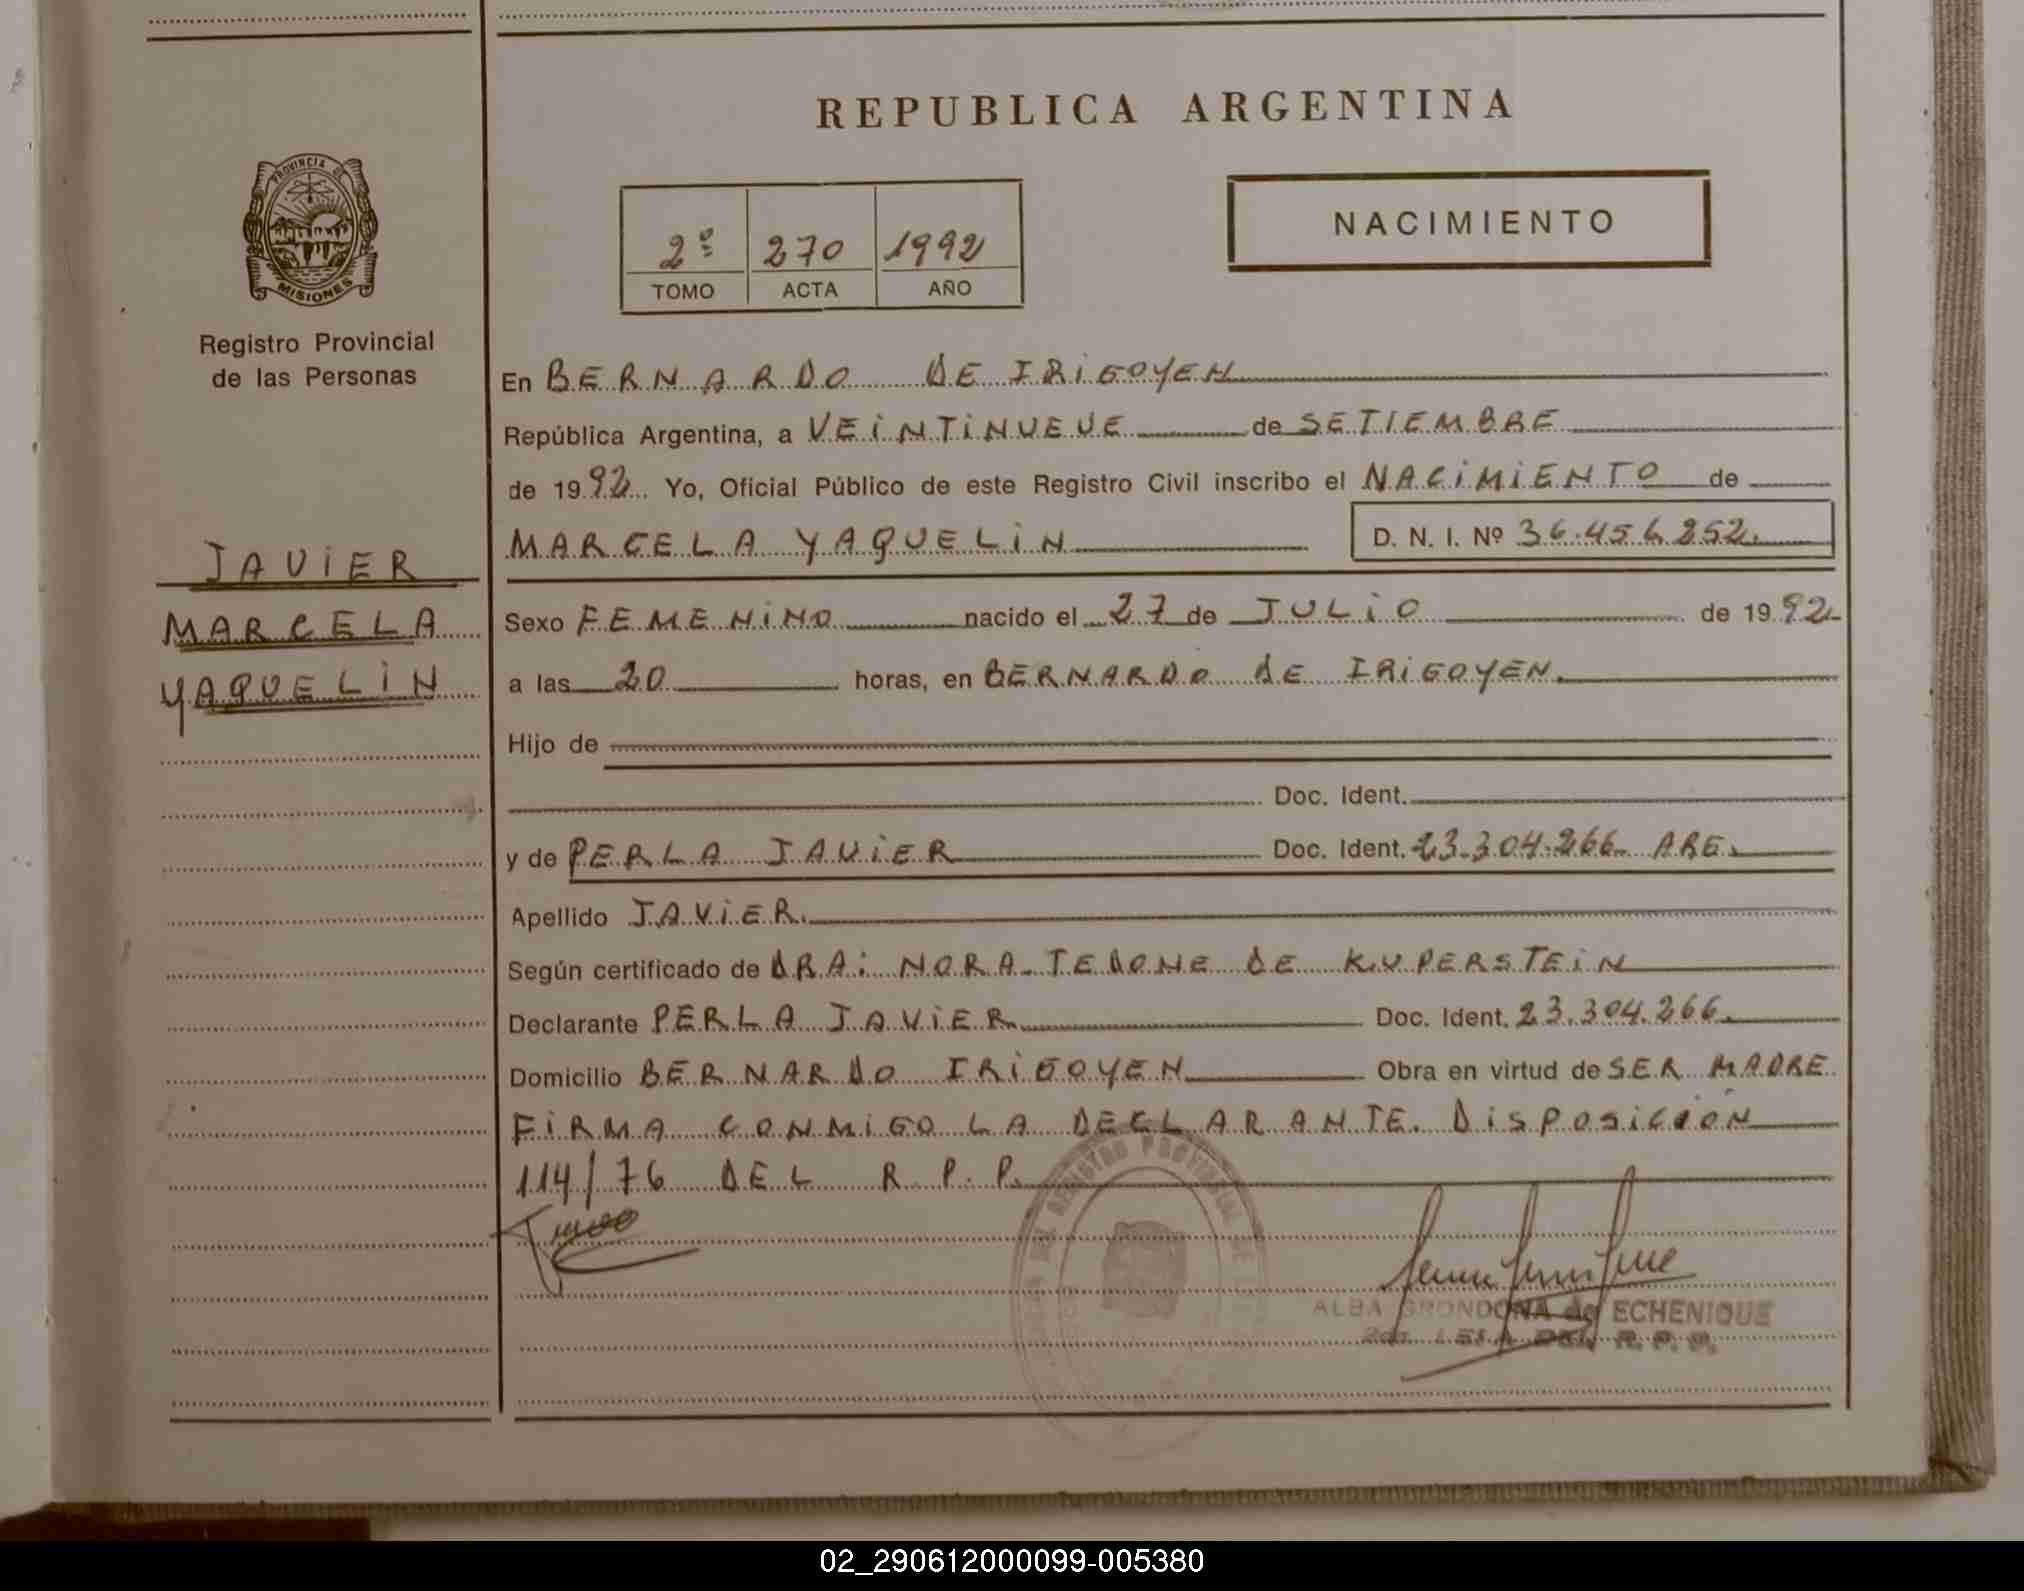 REPUBLICA ARGENTINA
PROVINCIA DE
MISIONES
Registro Provincial
de las Personas
2º 270 1992
TOMO ACTA AÑO
NACIMIENTO
JAVIER
MARCELA
YAQUELIN
En BERNARDO DE IRIGOYEN
República Argentina, a VEINTINUEVE de SETIEMBRE
de 1992 Yo, Oficial Público de este Registro Civil inscribo el NACIMIENTO de
MARCELA YAQUELIN D. N. I. Nº 36.456.252.
Sexo FEMENINO nacido el 27 de JULIO de 1992
a las 20 horas, en BERNARDO DE IRIGOYEN.
Hijo de
Doc. Ident.
y de PERLA JAVIER Doc. Ident. 23.304.266 ARG.
Apellido JAVIER.
Según certificado de DRA: NORA TEDONE DE KUPERSTEIN
Declarante PERLA JAVIER Doc. Ident. 23.304.266.
Domicilio BERNARDO IRIGOYEN Obra en virtud de SER MADRE
FIRMA CONMIGO LA DECLARANTE. DISPOSICION
114/76 DEL R.P.P.
REGISTRO PROVINCIAL DE
ALBA GRONDONA de ECHENIQUE
R. P. P.
02_290612000099-005380